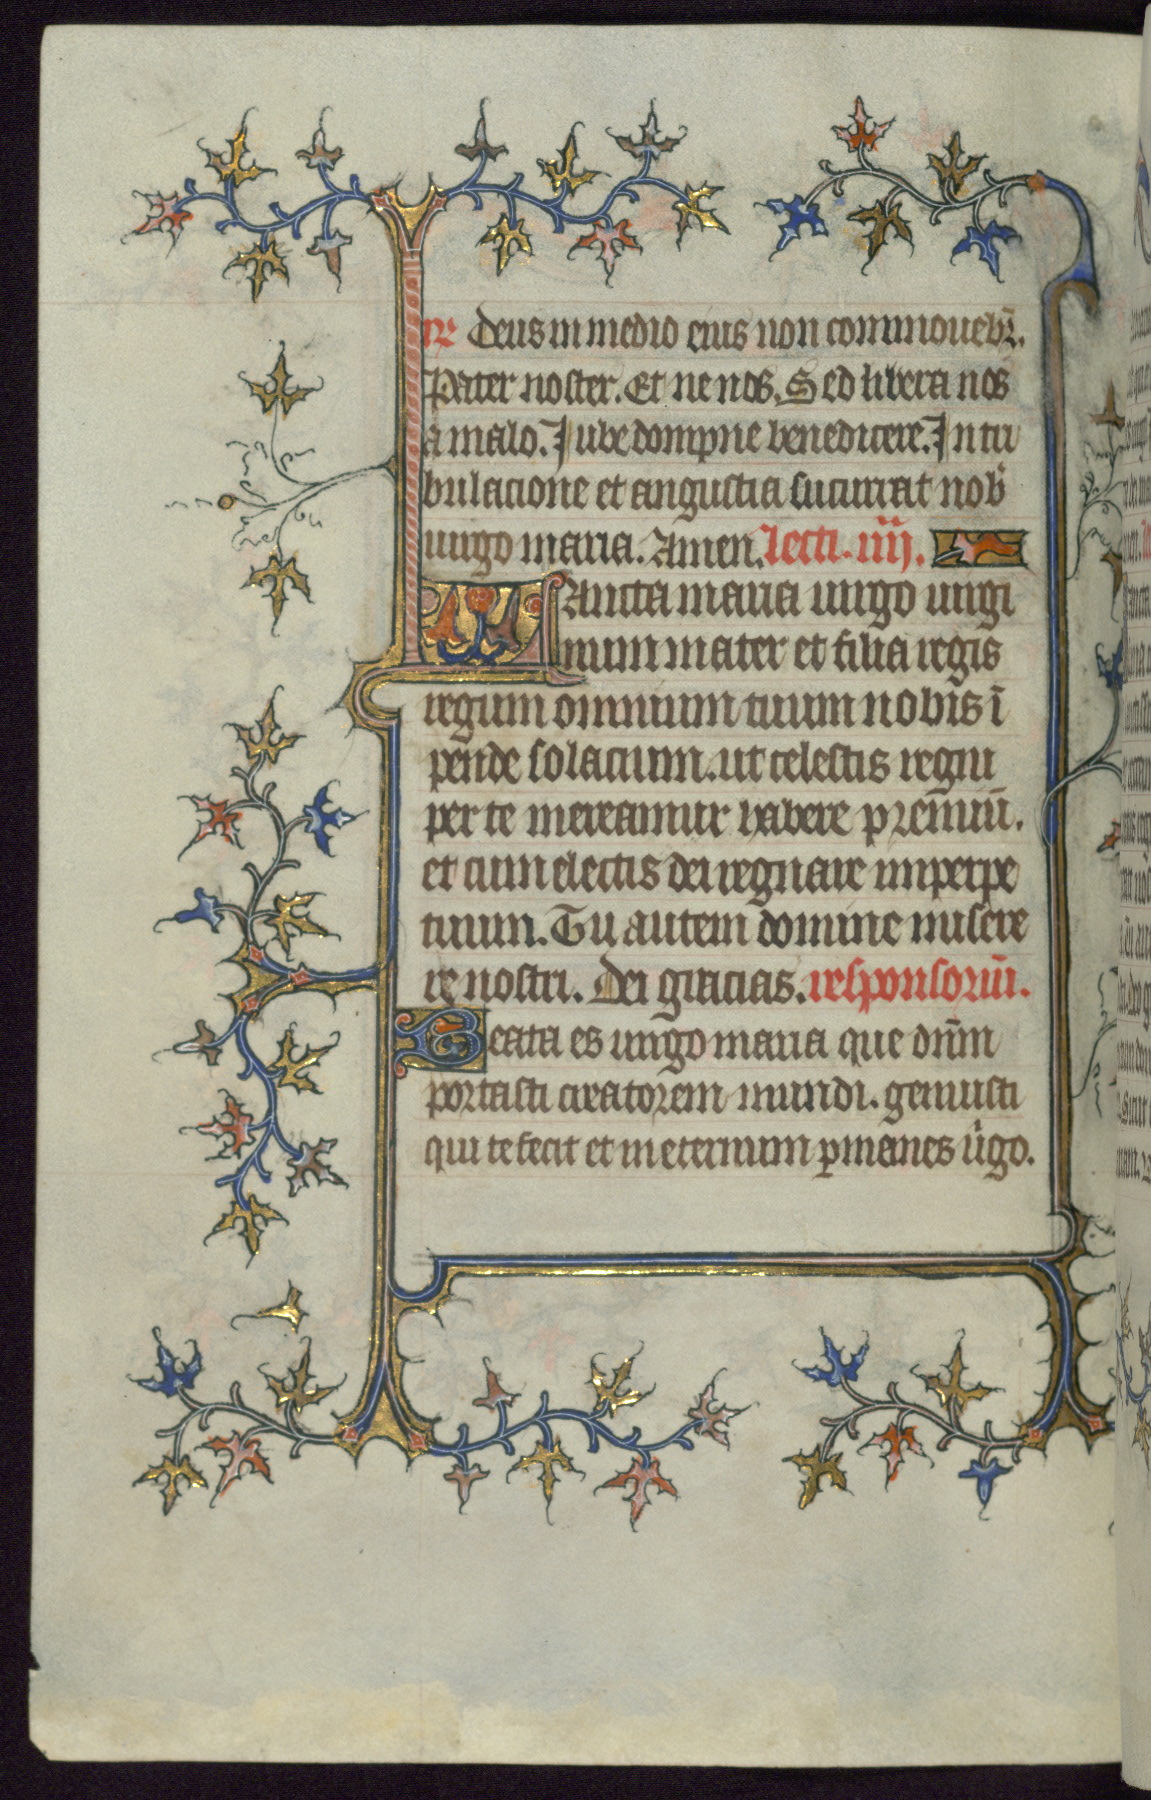 R Deus in medio eius non commouebr̄.
Pater noster. Et ne nos. Sed libera nos
a malo. Jube dompne benedicere. In tri
bulacione et angustia sucurrat nob̄
uirgo maria. Amen. lecti. iiij.
Sancta maria uirgo uirgi
num mater et filia regis
regum omnium tuum nobis ī
pende solacium. ut celestis regni
per te mereamur habere premiū.
et cum electis dei regnare inperpe
tuum. Tu autem domine misere
re nostri. Dei gracias. responsoriū.
Beata es uirgo maria que dn̄m
portasti creatorem mundi. genuisti
qui te fecit et in eternum ꝑmanes ûgo.